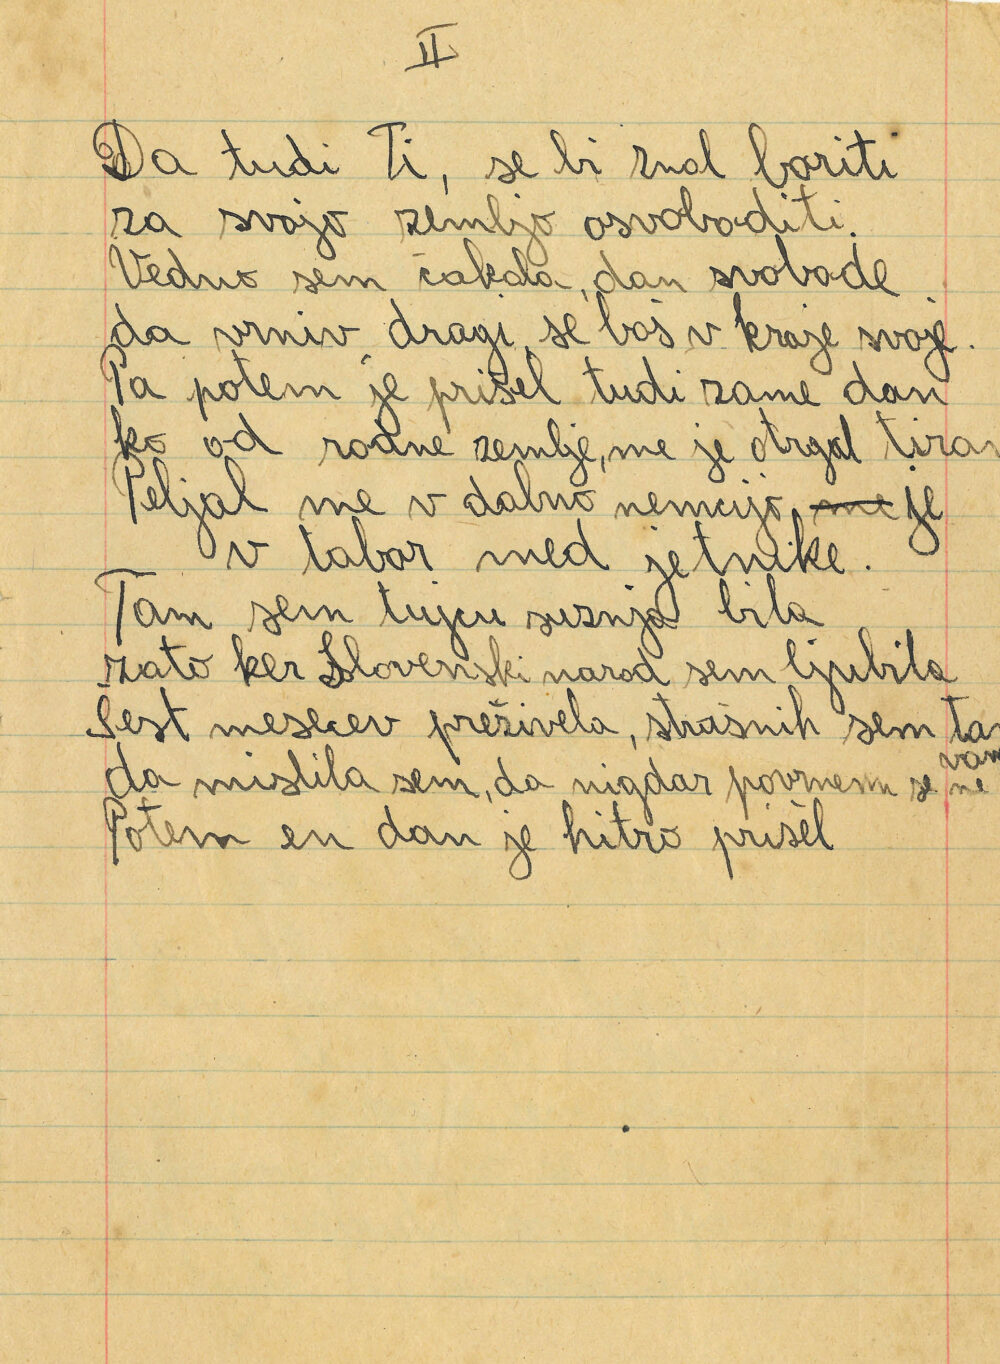 II
Da tudi Ti, se bi znal boriti
za svojo zemljo osvoboditi.
Vedno sem čakala, dan svobode
da vrniv dragi, se boš v kraje svoje.
Pa potem je prišel tudi zame dan
ko od rodne zemlje, me je otrgal tiran
Peljal me v dalno nemcijo, me je
v tabor med jetnike.
Tam sem tujcu suznja bila
zato ker Slovenski narod sem ljubila
Šest mesecev preživela, strašnih sem tam
da mislila sem, da nigdar povrnem se ne
vam
Potem en dan je hitro prišel